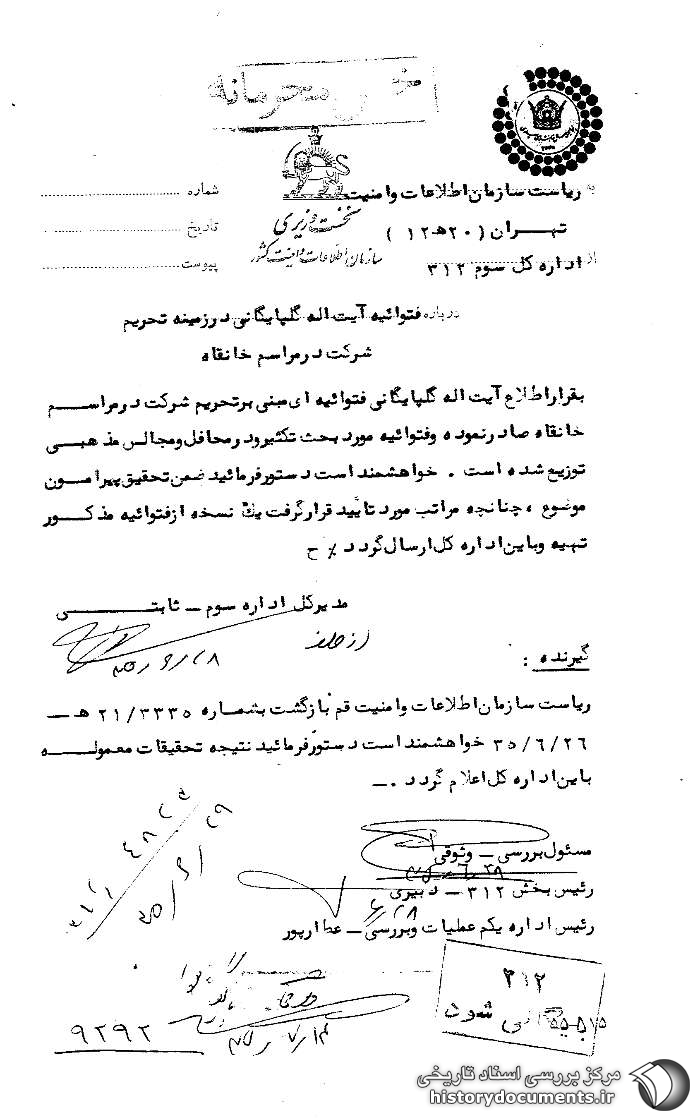 خیلی محرمانه
به ریاست سازمان اطلاعات و امنیت
شماره
نخست وزیری
تهران (۲۰هـ۱۲)
تاریخ
سازمان اطلاعات و امنیت کشور
از اداره کل سوم ۳۱۲
پیوست
درباره فتوائیه آیت اله گلپایگانی در زمینه تحریم
شرکت در مراسم خانقاه
بقرار اطلاع آیت اله گلپایگانی فتوائیه ای مبنی بر تحریم شرکت در مراسم
خانقاه صادر نموده و فتوائیه مورد بحث تکثیر و در محافل و مجالس مذهبی
توزیع شده است . خواهشمند است دستور فرمائید ضمن تحقیق پیرامون
موضوع ، چنانچه مراتب مورد تأیید قرار گرفت یک نسخه از فتوائیه مذکور
تهیه و باین اداره کل ارسال گردد٪ ح
مدیر کل اداره سوم ـ ثابتی
از طرف
گیرنده :
ریاست سازمان اطلاعات و امنیت قم بازگشت بشماره ۲۱/۳۳۳۵ هـ ـ
۳۵/۶/۲۶ خواهشمند است دستور فرمائید نتیجه تحقیقات معموله
باین اداره کل اعلام گردد .ـ
مسئول بررسی ـ وثوقی
رئیس بخش ۳۱۲ ـ دبیری
۶/۲۸
رئیس اداره یکم عملیات و بررسی ـ عطارپور
۳۱۲
۹۲۹۲
مرکز بررسی اسناد تاریخی
historydocuments.ir